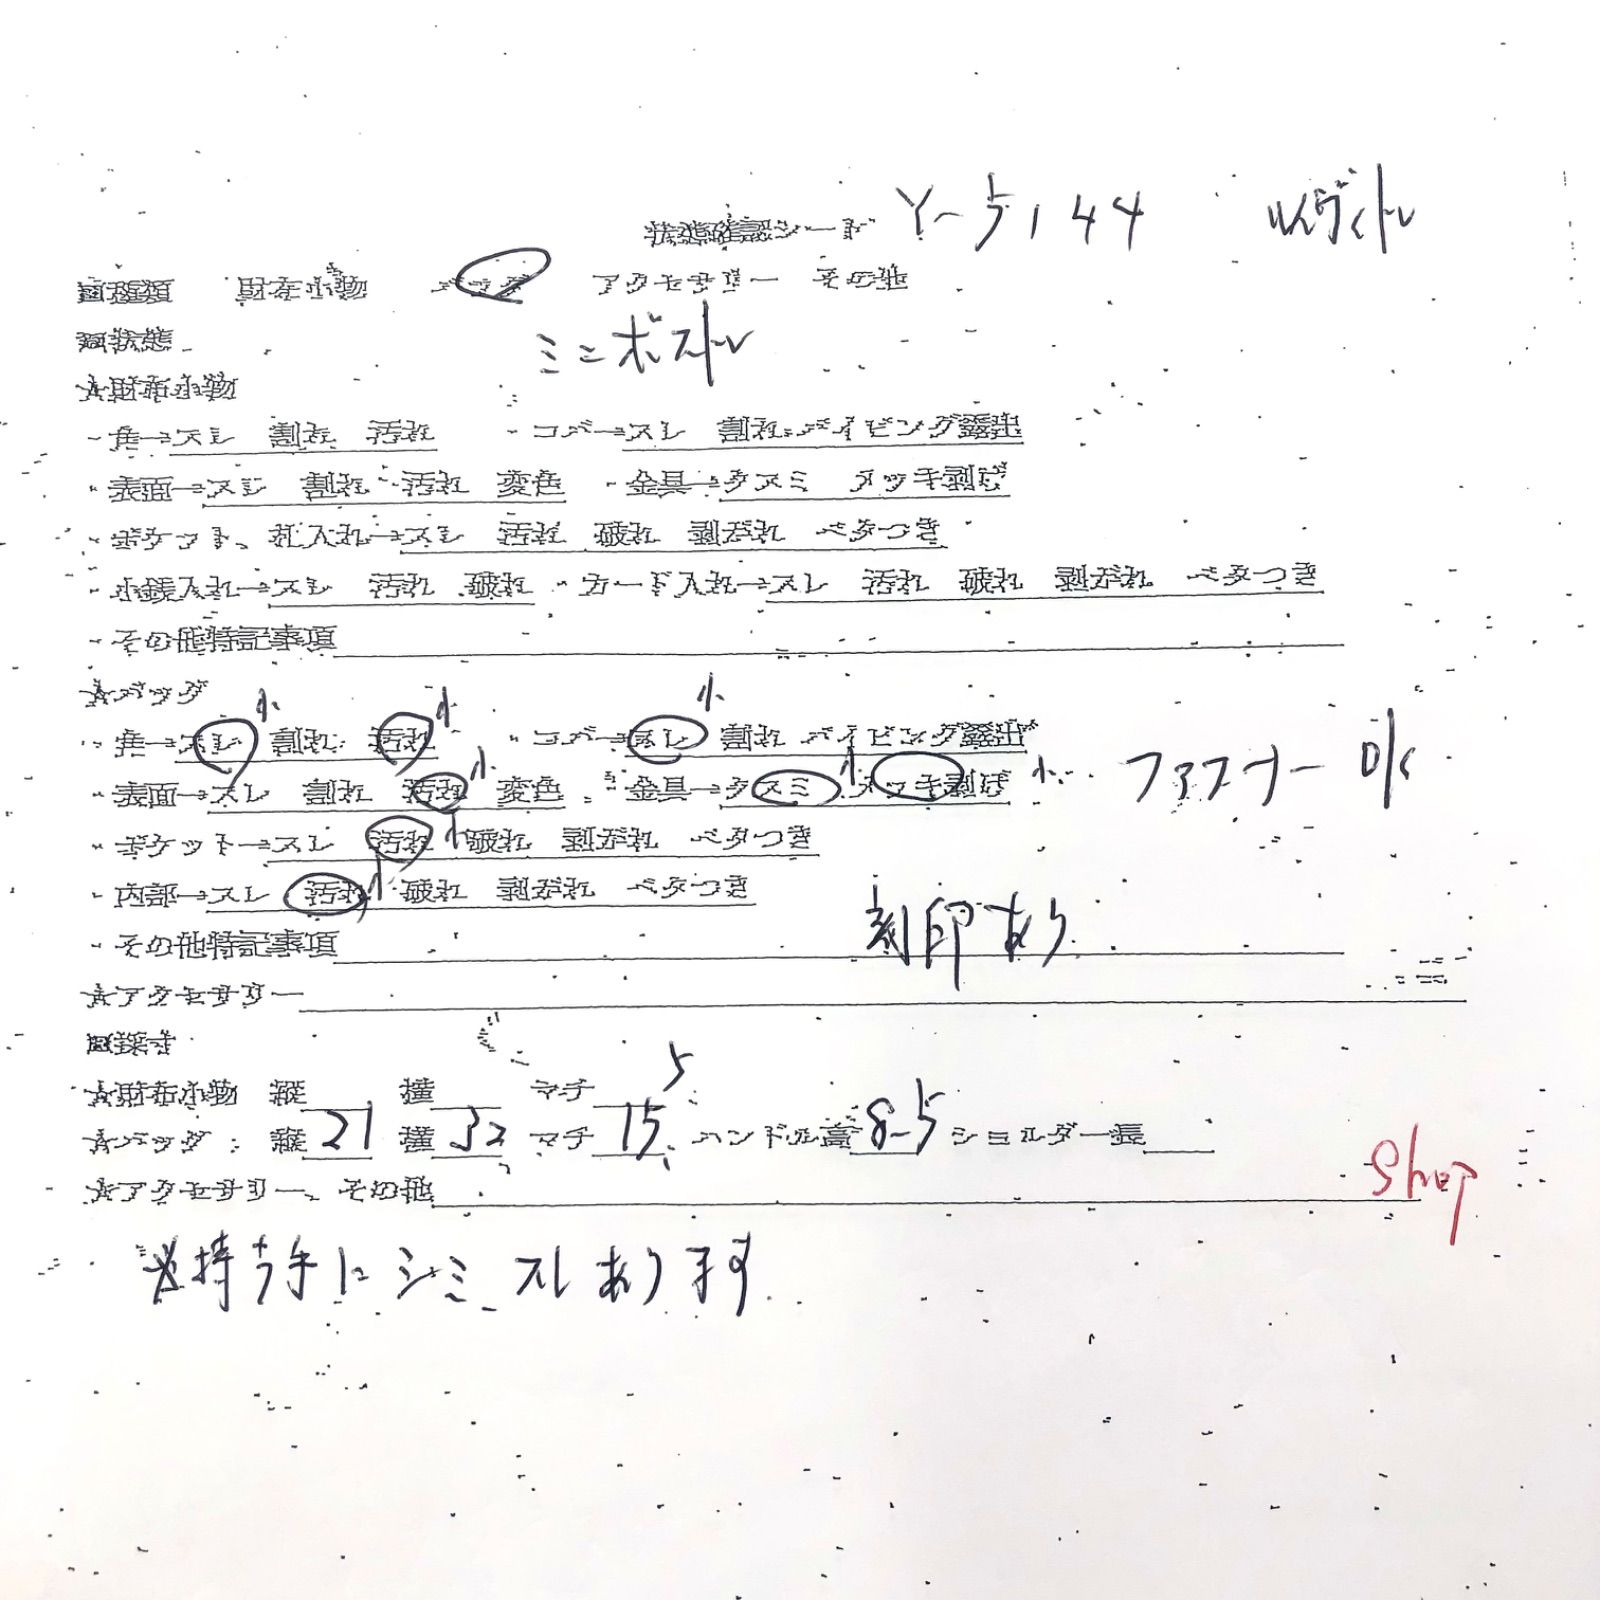 状態確認シート Y-5144 ルイヴィトン
□種類 財布小物 バッグ アクセサリー その他
□状態 ミニボストン
★財布小物
・角→スレ 割れ 汚れ ・コバ→スレ 割れ パイピング露出
・表面→スレ 割れ 汚れ 変色 ・金具→クスミ メッキ剥げ
・ポケット、札入れ→スレ 汚れ 破れ 剥がれ ベタつき
・小銭入れ→スレ 汚れ 破れ ・カード入れ→スレ 汚れ 破れ 剥がれ ベタつき
・その他特記事項
★バッグ
・角→スレ小 割れ 汚れ小 ・コバ→スレ小 割れ パイピング露出
・表面→スレ 割れ 汚れ小 変色 ・金具→クスミ小 メッキ剥げ小 ファスナー OK
・ポケット→スレ 汚れ小 破れ 剥がれ ベタつき
・内部→スレ 汚れ小 破れ 剥がれ ベタつき
・その他特記事項 刻印あり
★アクセサリー
□採寸
★財布小物 縦 横 マチ
★バッグ 縦 21 横 32 マチ 15.5 ハンドル高 8-5 ショルダー長
★アクセサリー、その他 Shop
※持ち手にシミ スレあります